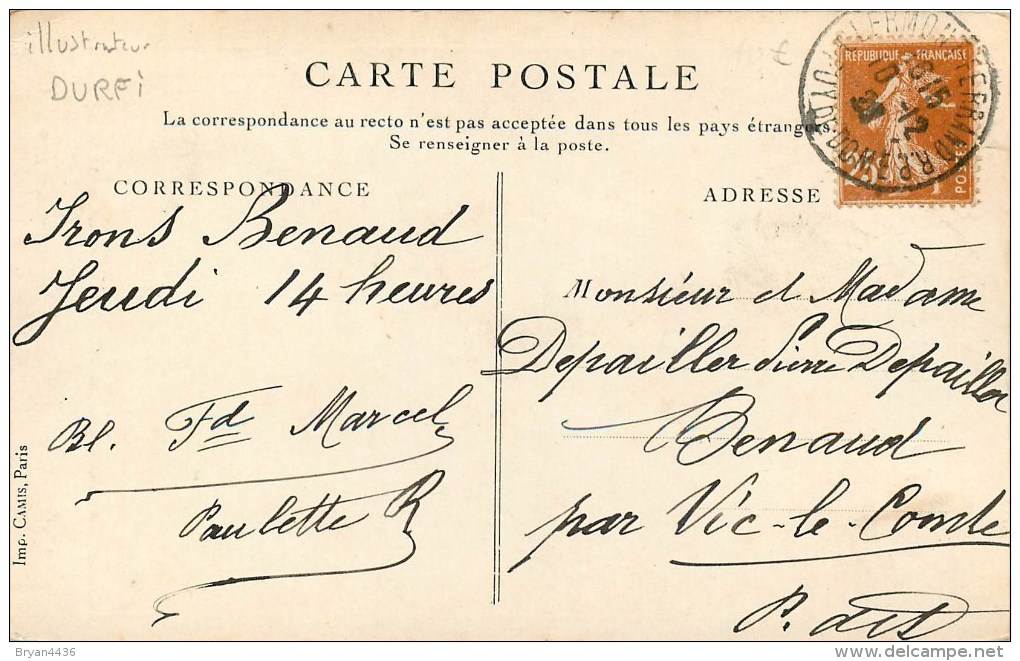 illustrateur
DURFi
CARTE POSTALE
La correspondance au recto n'est pas acceptée dans tous les pays étrangers.
Se renseigner à la poste.
RÉPUBLIQUE FRANÇAISE
CLERMONT-FERRAND R.P.
PUY DE DÔME
CORRESPONDANCE
ADRESSE
Irons Benaud
Jeudi 14 heures
Bl. Fd Marcel
Paulette R
Imp. CAMIS, Paris
Monsieur et Madame
Depailler Pierre Depailler
Benaud
par Vic-le-Comte
P. de D
Bryan4436
delcampe.net